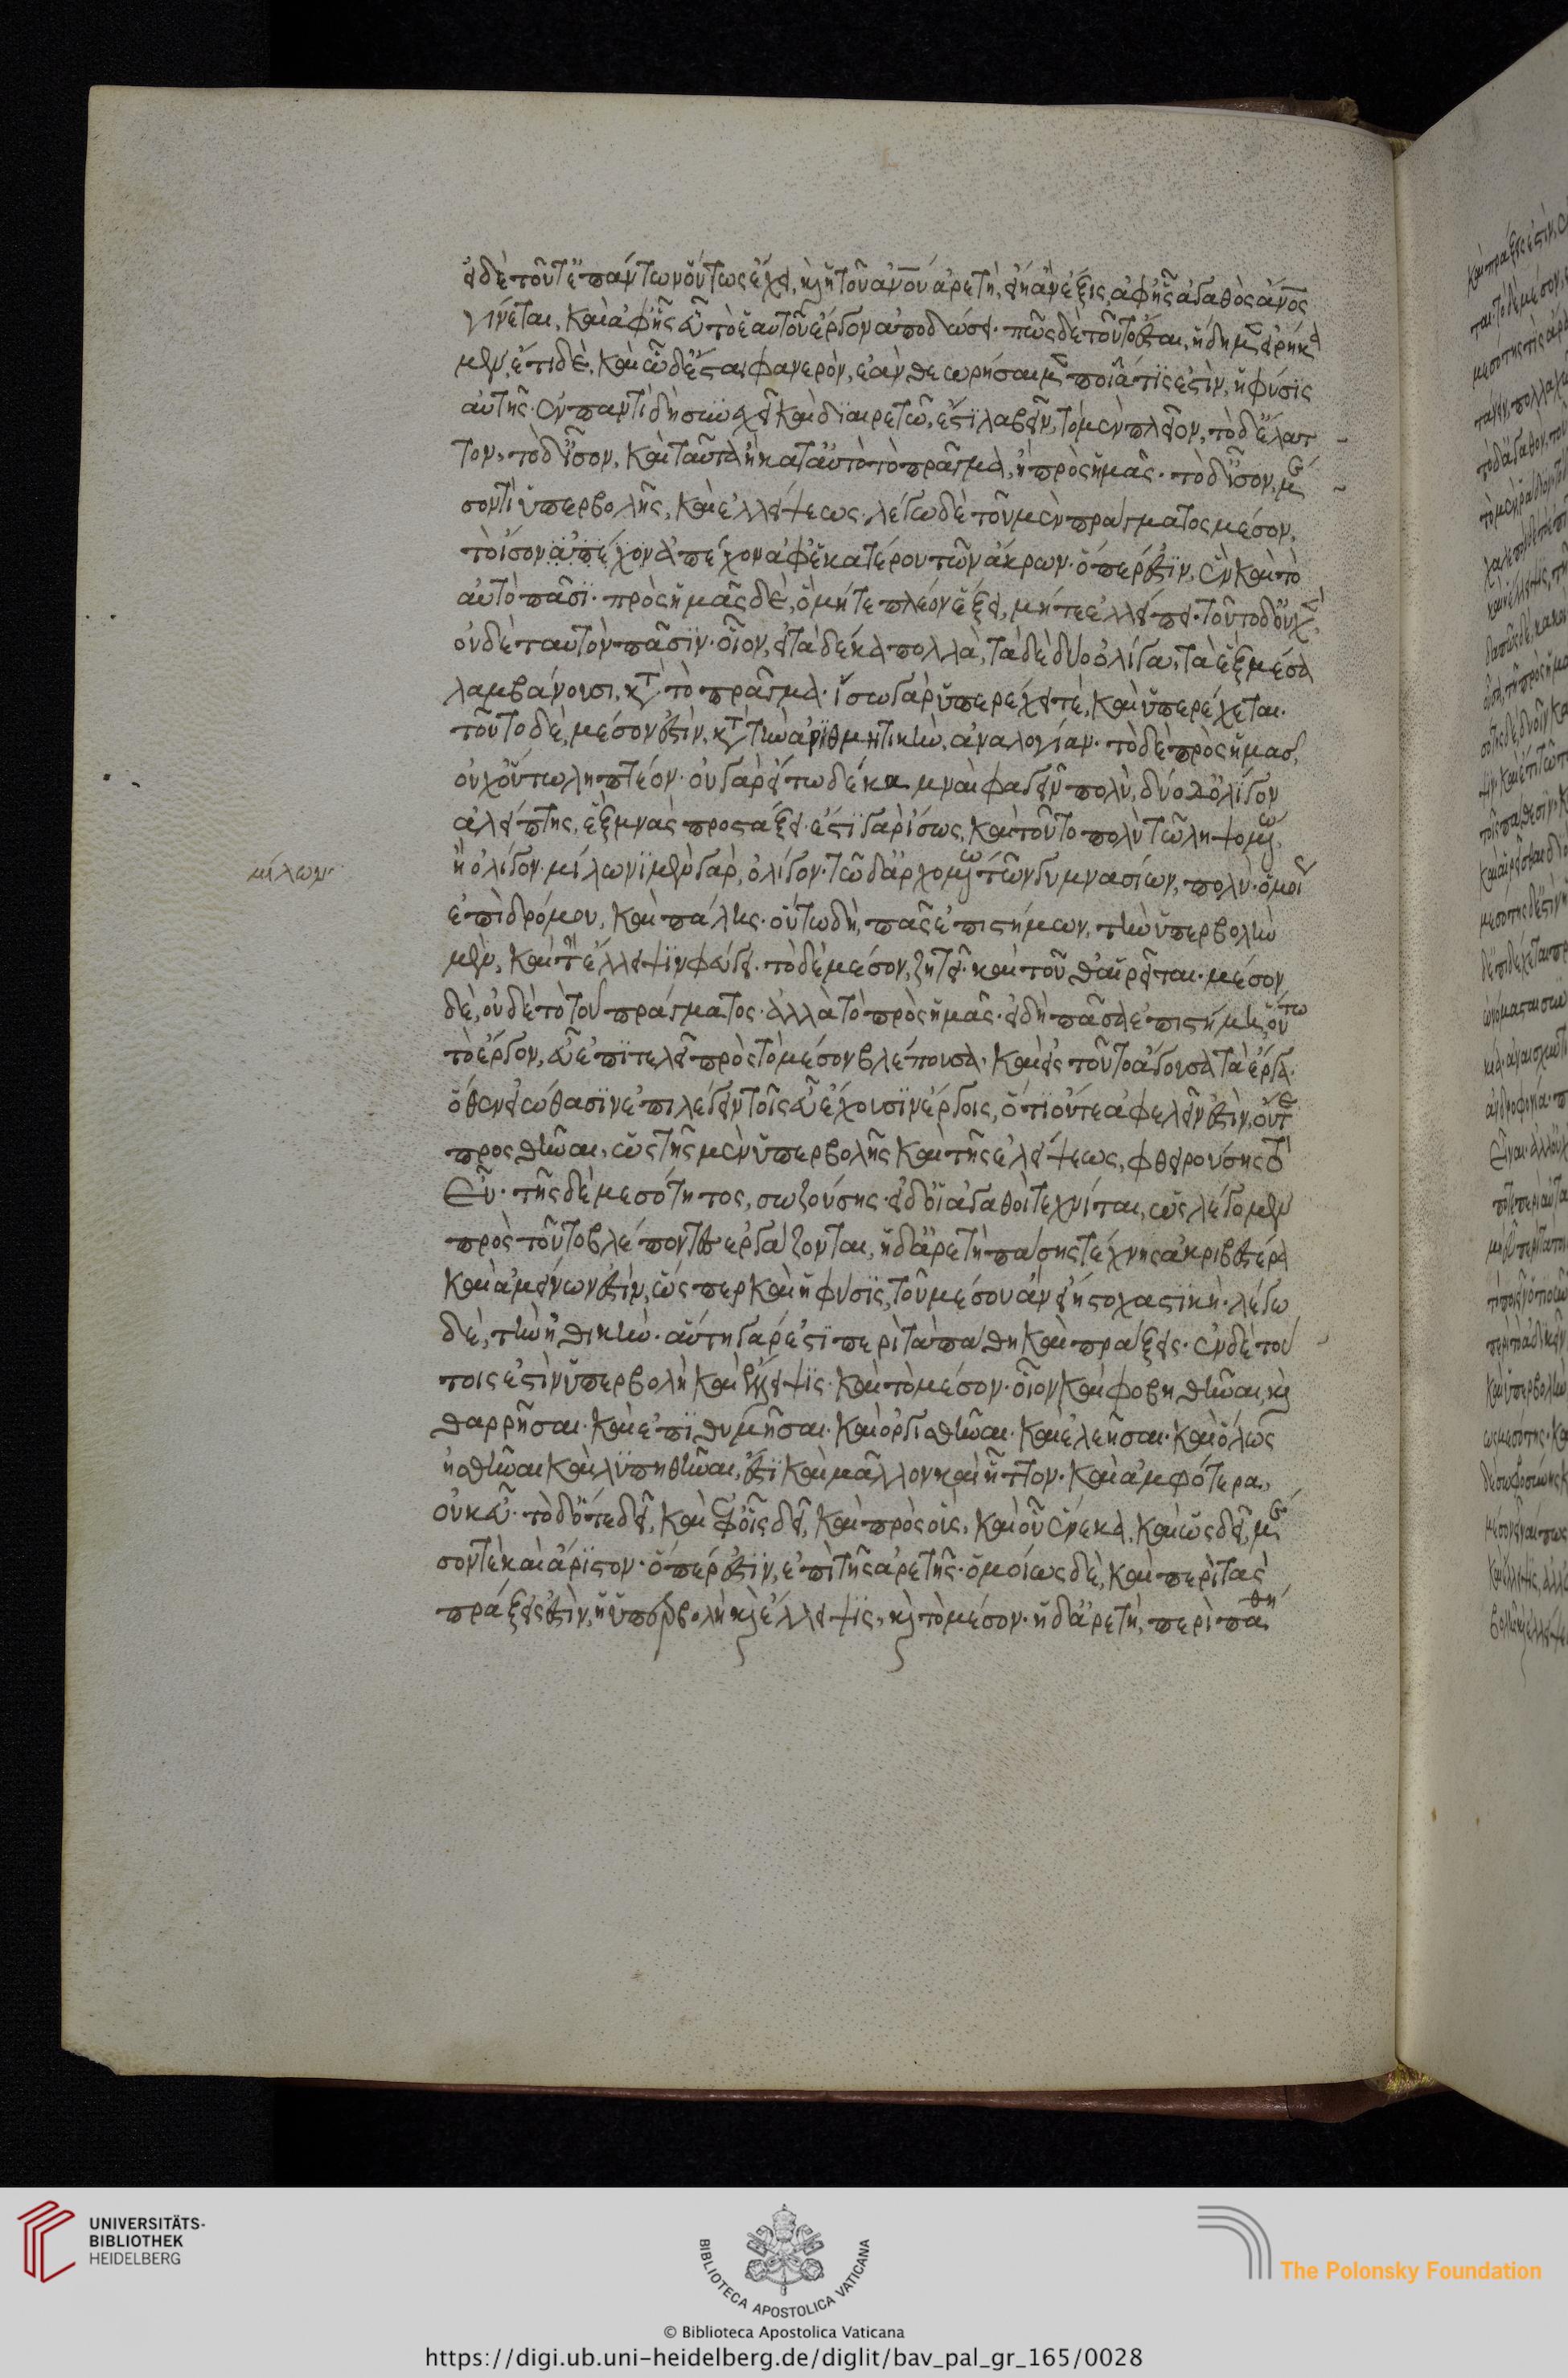 εἰ δὲ τοῦτ' ἐπὶ πάντων οὕτως ἔχει, καὶ ἡ τοῦ ἀνου ἀρετὴ, εἴη ἂν ἕξις, ἀφ' ἧς ἀγαθὸς ἄνος
γίνεται, καὶ ἀφ' ἧς εὖ τὸ ἑαυτοῦ ἔργον ἀποδώσει. πῶς δὲ τοῦτο ἔσται, ἤδη μὲν εἰρήκα
μεν, ἔτι δὲ, καὶ ὧδ' ἔσται φανερὸν, ἐὰν θεωρήσωμεν ποία τίς ἐστὶν, ἡ φύσις
αὐτῆς. ἐν παντὶ δὴ συνεχεῖ καὶ διαιρετῶ, ἔστι λαβεῖν, τὸ μὲν πλεῖον, τὸ δ' ἔλατ
τον, τὸ δ' ἴσον, καὶ ταῦτα ἢ κατ' αὐτὸ τὸ πρᾶγμα, ἢ πρὸς ἡμᾶς. τὸ δ' ἴσον, μέ
σον τι ὑπερβολῆς, καὶ ἐλλείψεως. λέγω δὲ τοῦ μὲν πράγματος μέσον,
τὸ ἴσον ἀπέχον ἀπέχον ἀφ' ἑκατέρου τῶν ἄκρων. ὅπερ ἐστὶν, ἓν καὶ τὸ
αὐτὸ πᾶσι. πρὸς ἡμᾶς δὲ, ὃ μήτε πλεονέξει, μήτε ἐλλείπει. τοῦτο δ' οὐχ ἓν
οὐδὲ ταυτὸν πᾶσιν. οἷον, εἰ τὰ δέκα πολλὰ, τὰ δὲ δύο ὀλίγα, τὰ ἓξ μέσα
λαμβάνουσι, κατὰ τὸ πρᾶγμα. ἴσω γὰρ ὑπερέχει τὲ, καὶ ὑπερέχεται.
τοῦτο δὲ, μέσον ἐστὶν, κατὰ τὴν ἀριθμητικὴν, ἀναλογίαν. τὸ δὲ πρὸς ἡμᾶς,
οὐχ οὕτω ληπτέον. οὐ γὰρ εἴ τω δέκα μναῖ φαγεῖν πολὺ, δύο δὲ ὀλίγον
ἀλείπτης, ἓξ μνᾶς προστάξει. ἔστι γὰρ ἴσως, καὶ τοῦτο πολὺ τῶ ληψομένω,
ἢ ὀλίγον. μίλωνι μὲν γὰρ, ὀλίγον. τῶ δ' ἀρχομένω τῶν γυμνασίων, πολύ. ὁμοί
μίλων.
ἐπὶ δρόμου, καὶ πάλης. οὕτω δὴ, πᾶς ἐπιστήμων, τὴν ὑπερβολὴν
μὲν, καὶ τὴν ἔλλειψιν φεύγει. τὸ δὲ μέσον, ζητεῖ. καὶ τοῦθ' αἱρεῖται. μέσον
δὲ, οὐ δὲ τὸ τοῦ πράγματος. ἀλλὰ τὸ πρὸς ἡμᾶς. εἰ δὴ πᾶσα ἐπιστήμη, οὕτω
τὸ ἔργον, εὖ ἐπιτελεῖ πρὸς τὸ μέσον βλέπουσα. καὶ εἰς τοῦτο ἄγουσα τὰ ἔργα.
ὅθεν εἰώθασιν ἐπιλέγειν τοῖς εὖ ἔχουσιν ἔργοις, ὅτι οὔτε ἀφελεῖν ἐστὶν, οὔτε
προσθεῖναι, ὡς τῆς μὲν ὑπερβολῆς καὶ τῆς ἐλείψεως, φθειρούσης τὸ
εὖ. τῆς δὲ μεσότητος, σωζούσης. εἰ δ' οἱ ἀγαθοὶ τεχνίται, ὡς λέγομεν
πρὸς τοῦτο βλέποντες ἐργάζονται, ἡ δ' ἀρετὴ πάσης τέχνης ἀκριβεστέρα
καὶ ἀμείνων ἐστὶν, ὥσπερ καὶ ἡ φύσις, τοῦ μέσου ἂν εἴη στοχαστικὴ. λέγω
δὲ, τὴν ἠθικὴν. αὕτη γάρ ἐστι περὶ τὰ πάθη καὶ πράξεις. ἐν δὲ τού
τοις ἐστὶν ὑπερβολὴ καὶ ἔλλειψις. καὶ τὸ μέσον. οἷον καὶ φοβηθῆναι, καὶ
θαρρῆσαι. καὶ ἐπιθυμῆσαι. καὶ ὀργισθῆναι. καὶ ἐλεῆσαι. καὶ ὅλως
ἡσθῆναι καὶ λυπηθῆναι, ἔστι καὶ μᾶλλον καὶ ἧττον. καὶ ἀμφότερα,
οὐκ εὖ. τὸ δ' ὅτε δεῖ, καὶ ἐφ' οἷς δεῖ, καὶ πρὸς οὓς, καὶ οὗ ἕνεκα, καὶ ὡς δεῖ, μέ
σον τὲ καὶ ἄριστον. ὅπερ ἐστὶν, ἐπὶ τῆς ἀρετῆς. ὁμοίως δὲ, καὶ περὶ τὰς
πράξεις ἐστὶν, ἡ ὑπερβολὴ καὶ ἔλλειψις, καὶ τὸ μέσον. ἡ δ' ἀρετὴ, περὶ πάθη
UNIVERSITÄTS-
BIBLIOTHEK
HEIDELBERG
BIBLIOTECA APOSTOLICA VATICANA
The Polonsky Foundation
© Biblioteca Apostolica Vaticana
https://digi.ub.uni-heidelberg.de/diglit/bav_pal_gr_165/0028